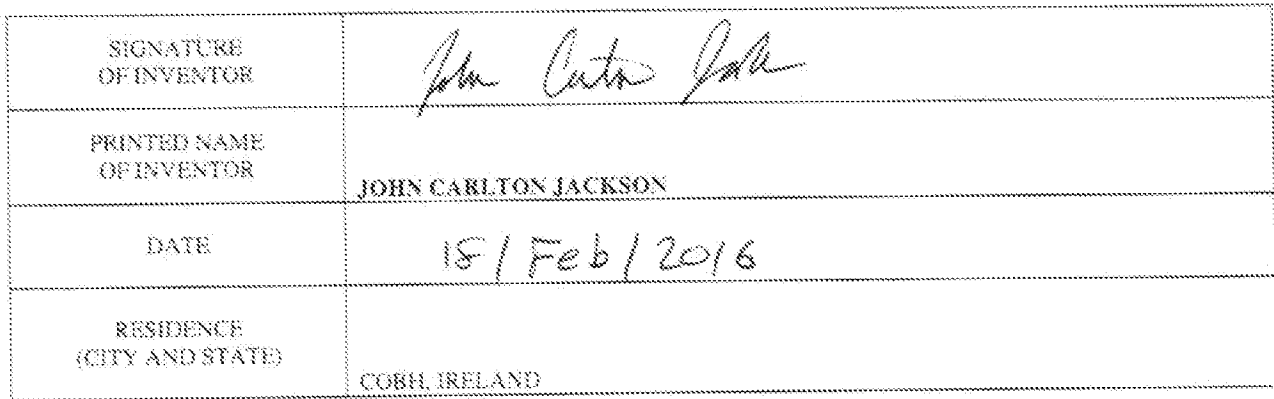 SIGNATURE
OF INVENTOR
John Carlton Jack
PRINTED NAME
OF INVENTOR
JOHN CARLTON JACKSON
DATE
15/Feb/2016
RESIDENCE
(CITY AND STATE)
COBH, IRELAND